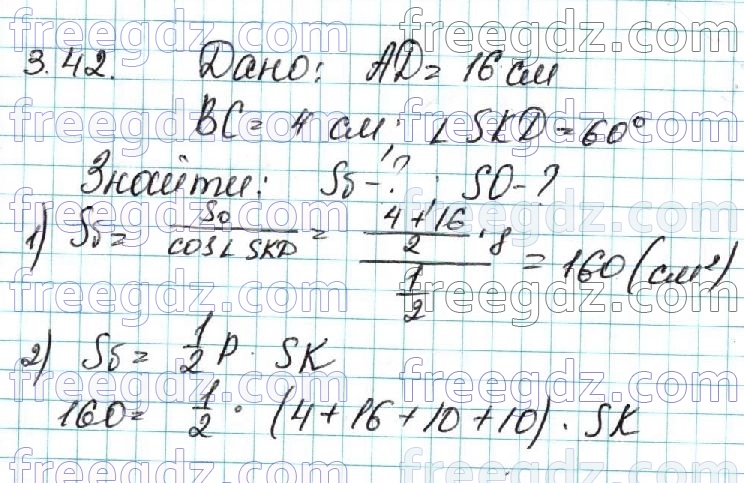 3.42. Дано: AD = 16 см
BC = 4 см; ∠SKD = 60°
Знайти: Sб - ?; SO - ?
1) Sб = So / cos∠SKD = ((4+16)/2 · 8) / (1/2) = 160 (см²)
2) Sб = 1/2 P · SK
160 = 1/2 · (4+16+10+10) · SK
freegdz.com